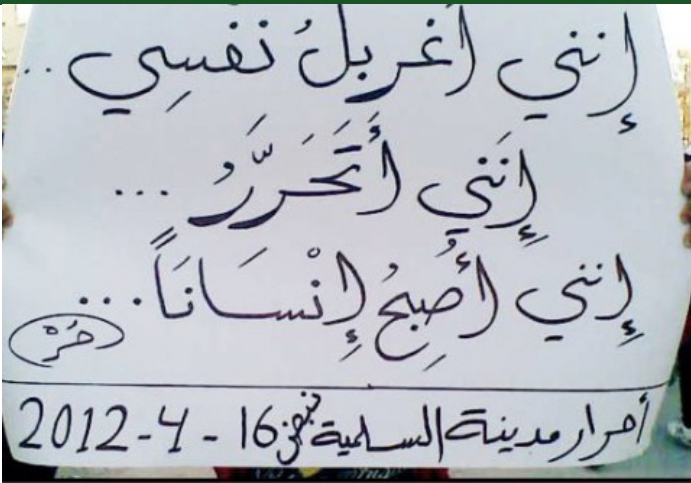 إنني أغربلُ نفسِي ..
إِنَنِي أَتَحَرَّرُ ...
إِنني أُصبِحُ إِنْسَانَاً ...
أحرار مدينة السلمية 16 - 4 - 2012